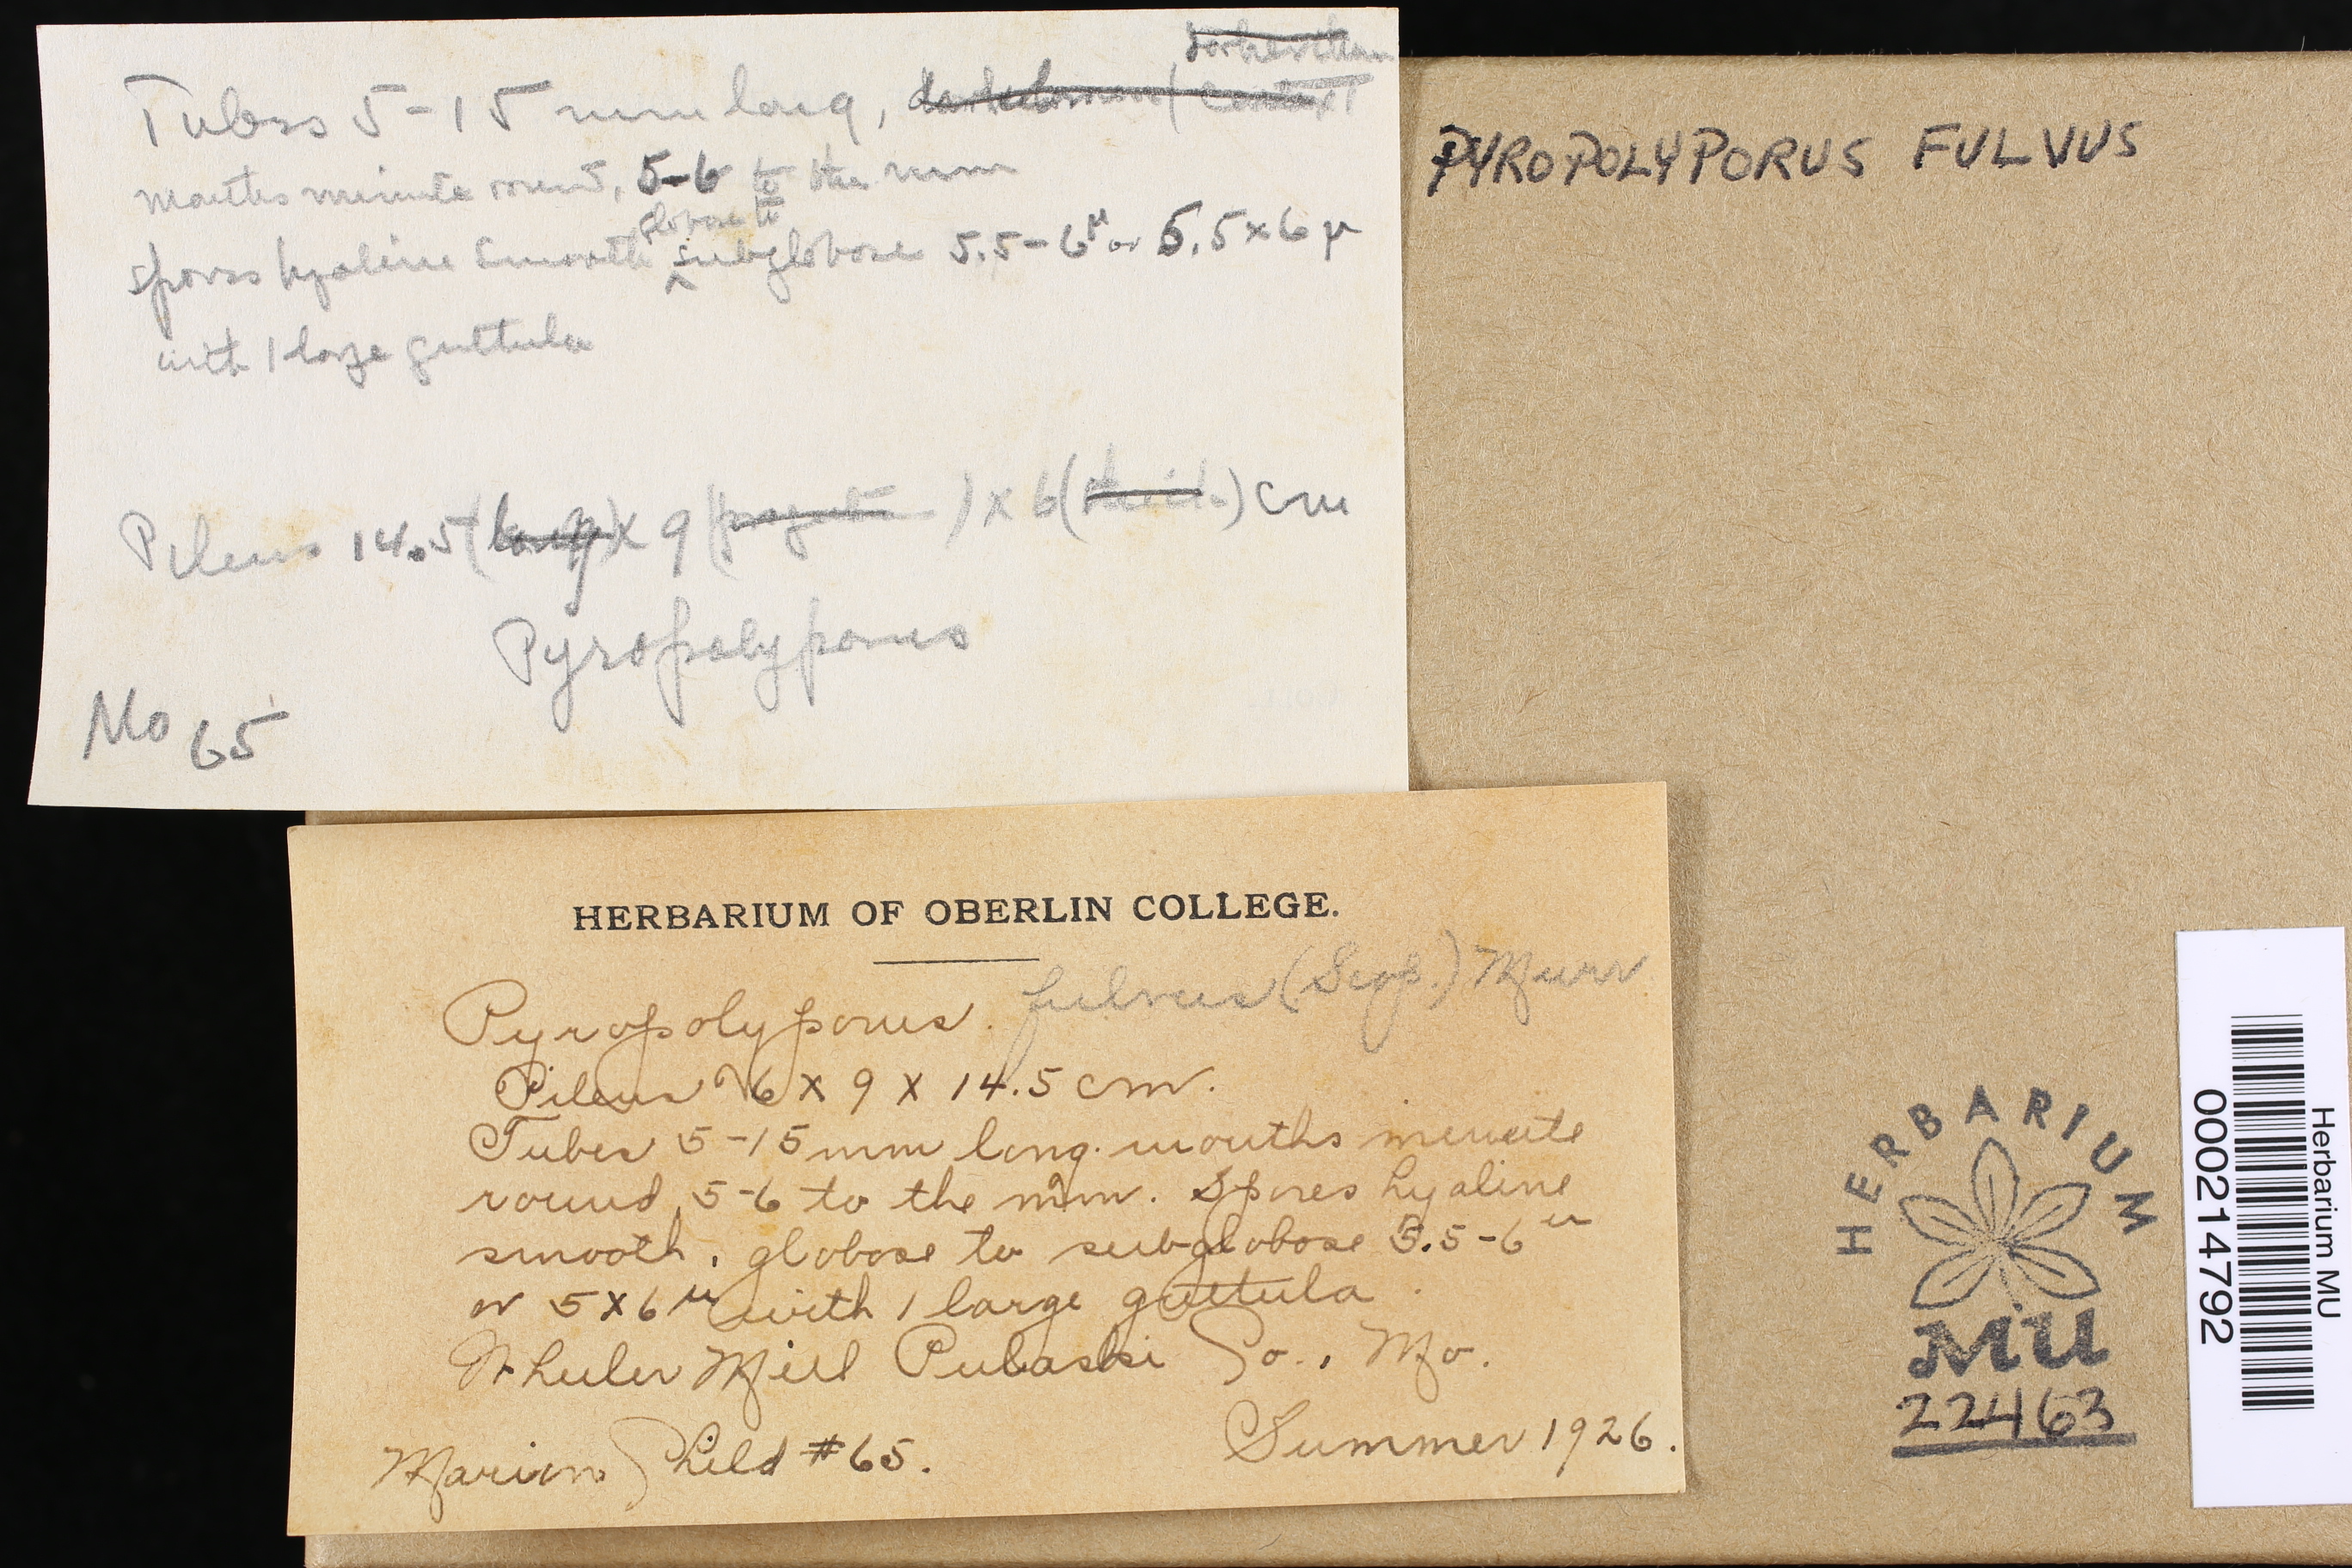 darker than
Tubes 5-15 mm long, dark brown (context
mouths minute round, 5-6 to the mm
globose to
spores hyaline smooth subglobose 5.5-6μ or 5.5x6μ
with 1 large guttula
Pileus 14.5(long)x 9( )x 6(thick)cm
Pyropolyporus
No 65
PYROPOLYPORUS FULVUS
HERBARIUM OF OBERLIN COLLEGE.
Pyropolyporus. fulvus (Scop.) Murr
Pileus 6 x 9 x 14.5 cm.
Tubes 5-15 mm long. mouths minute
round, 5-6 to the mm. Spores hyaline
smooth, globose to subglobose 5.5-6μ
or 5x6μ with 1 large guttula.
Wheeler Mill Pulaski Co., Mo.
Marion Child #65.
Summer 1926.
HERBARIUM
MU
22463
Herbarium MU
000214792